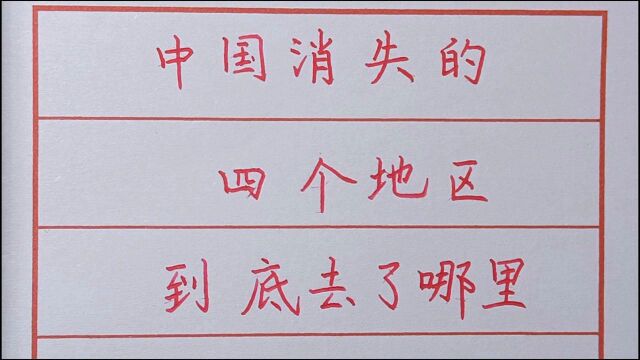 中国消失的
四个地区
到底去了哪里